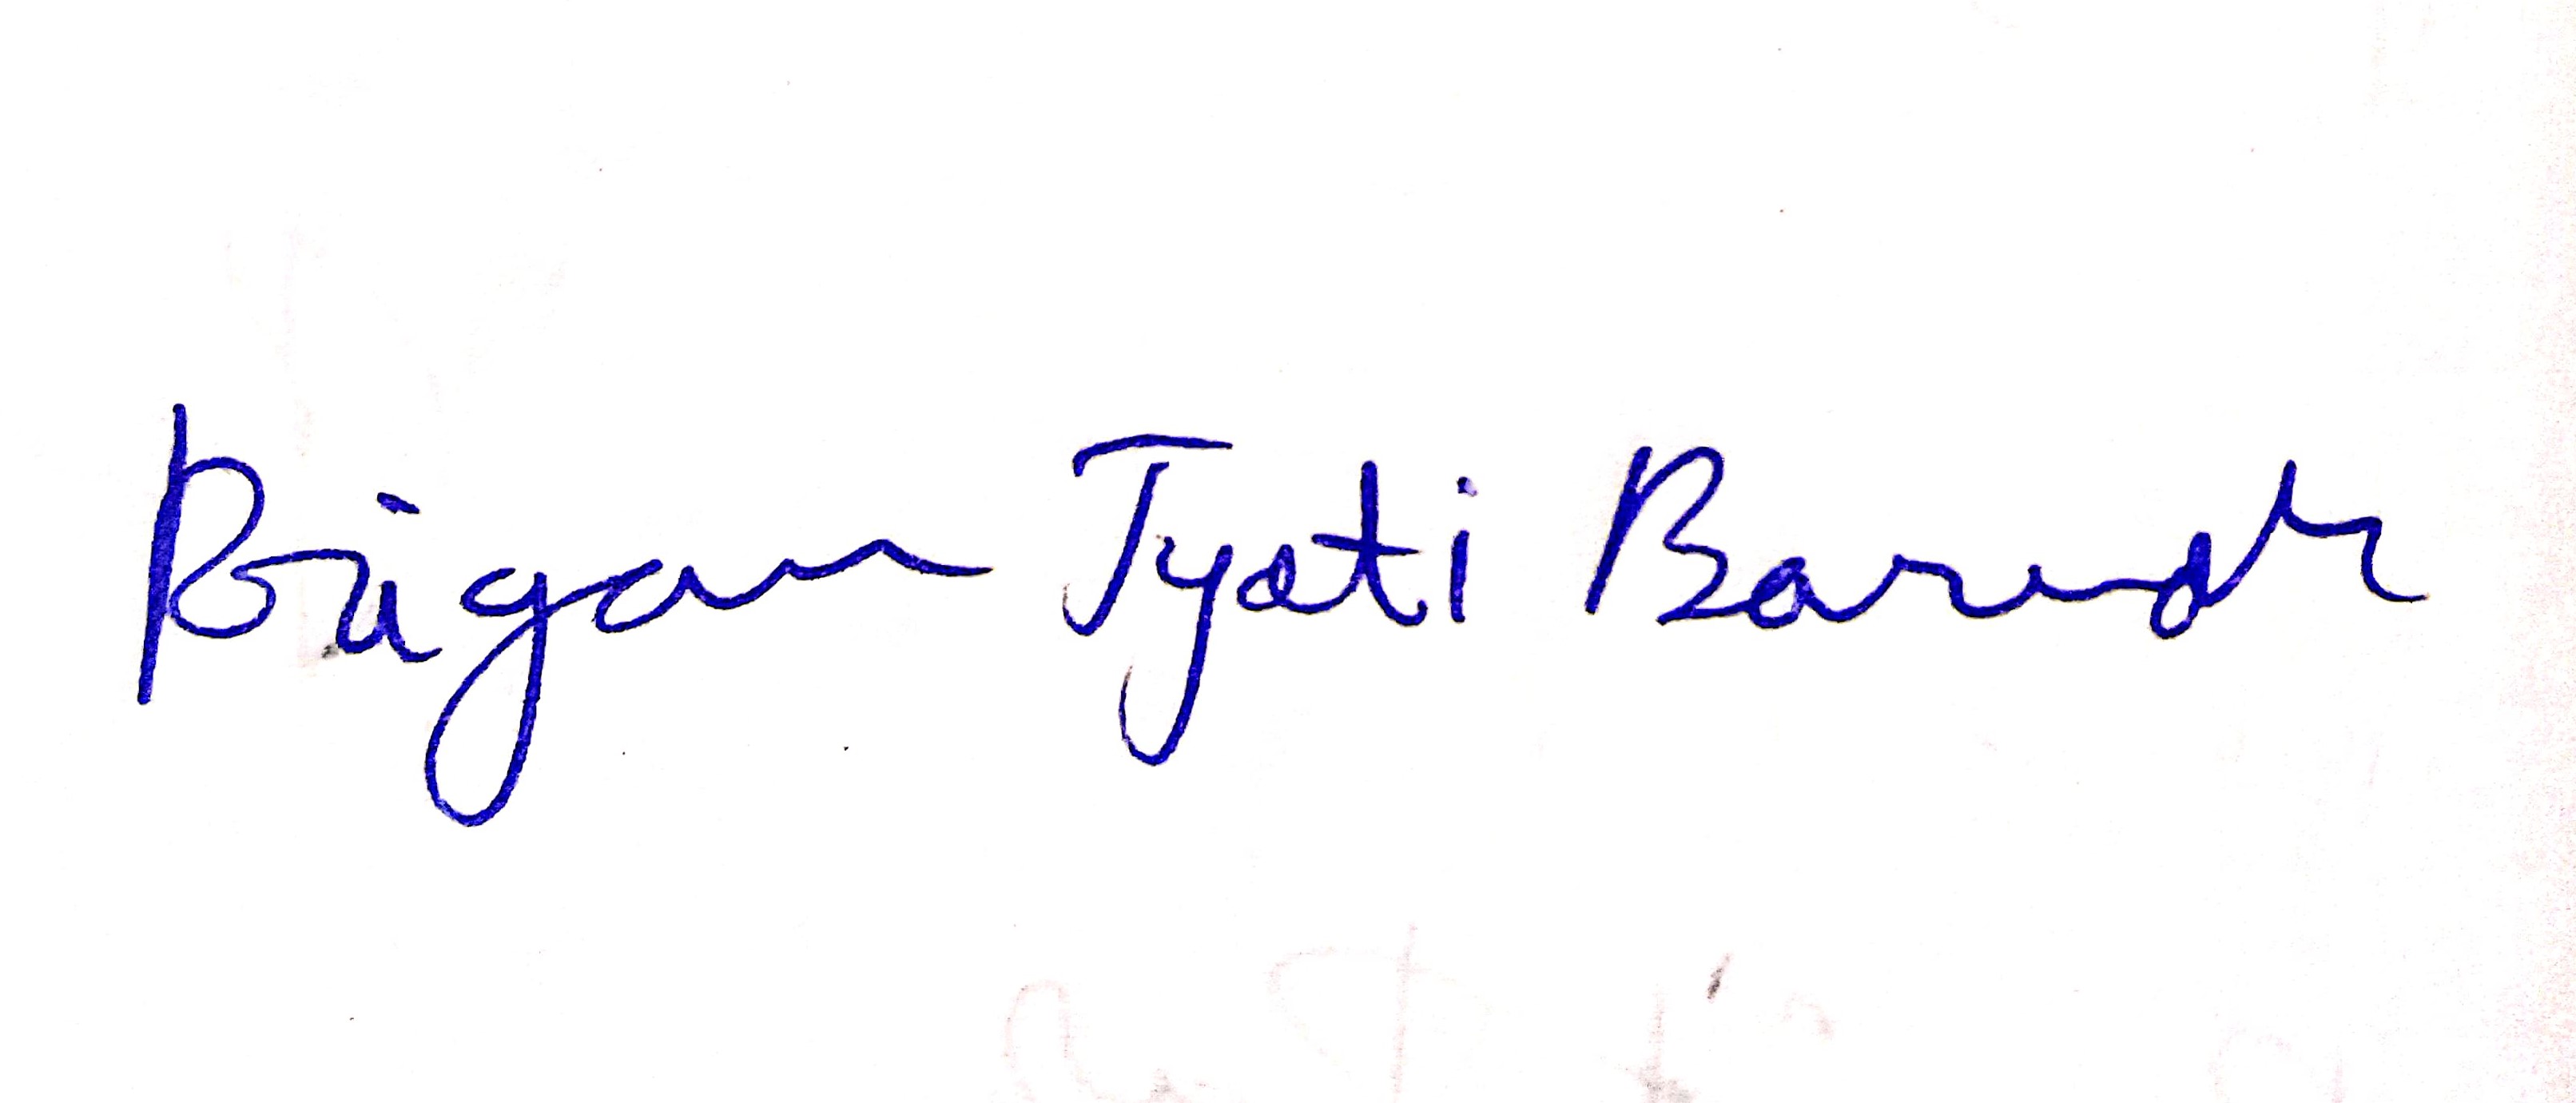 Brigam Jyoti Baruah